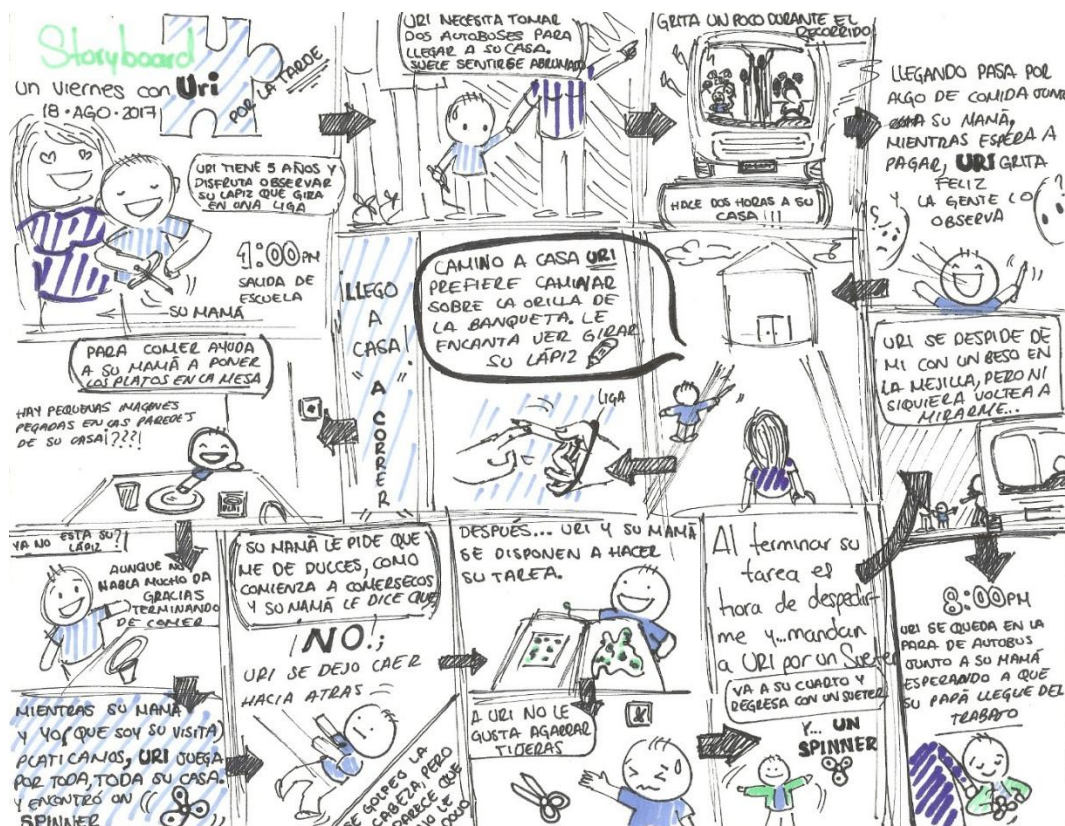 Storyboard
un viernes con Uri
18·AGO·2017
POR LA TARDE
URI TIENE 5 AÑOS Y
DISFRUTA OBSERVAR
SU LAPIZ QUE GIRA
EN UNA LIGA
1:00PM
SALIDA DE
ESCUELA
SU MAMÁ
URI NECESITA TOMAR
DOS AUTOBUSES PARA
LLEGAR A SU CASA.
SUELE SENTIRSE ABRUMADO
GRITA UN POCO DURANTE EL
RECORRIDO
HACE DOS HORAS A SU
CASA !!!
LLEGANDO PASA POR
ALGO DE COMIDA JUNTO
SU MAMÁ,
MIENTRAS ESPERA A
PAGAR, URI GRITA
FELIZ
Y LA GENTE LO
OBSERVA
CAMINO A CASA URI
PREFIERE CAMINAR
SOBRE LA ORILLA DE
LA BANQUETA. LE
ENCANTA VER GIRAR
SU LÁPIZ
LIGA
¡LLEGO
A
CASA!
"A CORRER"
PARA COMER AYUDA
A SU MAMÁ A PONER
LOS PLATOS EN LA MESA
HAY PEQUEÑAS IMAGENES
PEGADAS EN LAS PAREDES
DE SU CASA¡???!
YA NO ESTA SU?!
LÁPIZ
AUNQUE NO
HABLA MUCHO DA
GRACIAS
TERMINANDO
DE COMER
MIENTRAS SU MAMÁ
Y YO, QUE SOY SU VISITA
PLATICAMOS, URI JUEGA
POR TODA, TODA SU CASA.
Y ENCONTRÓ UN
SPINNER
SU MAMÁ LE PIDE QUE
ME DE DULCES, COMO
COMIENZA A COMERSECOS
Y SU MAMÁ LE DICE QUE
¡NO!;
URI SE DEJO CAER
HACIA ATRAS
SE GOLPEO LA
CABEZA, PERO
PARECE QUE
NO LE
DESPUÉS... URI Y SU MAMÁ
SE DISPONEN A HACER
SU TAREA.
A URI NO LE
GUSTA AGARRAR
TIJERAS
Al terminar su
tarea es
hora de despedir-
me y...mandan
a URI por un Sueter
VA A SU CUARTO Y
REGRESA CON UN SUETER
Y... UN
SPINNER
URI SE DESPIDE DE
MI CON UN BESO EN
LA MEJILLA, PERO NI
SIQUIERA VOLTEA A
MIRARME...
8:00PM
URI SE QUEDA EN LA
PARA DE AUTOBUS
JUNTO A SU MAMÁ
ESPERANDO A QUE
SU PAPÁ LLEGUE DEL
TRABAJO